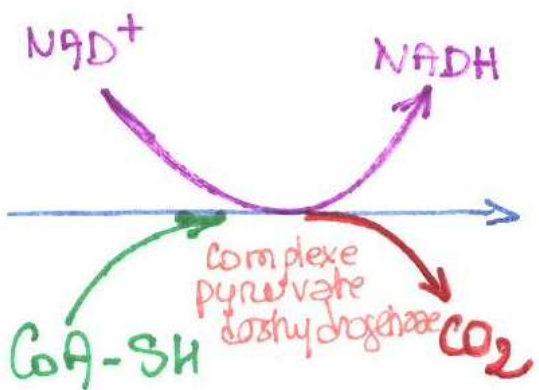 NAD+
NADH
complexe
pyruvate
deshydrogenase
CoA-SH
CO2